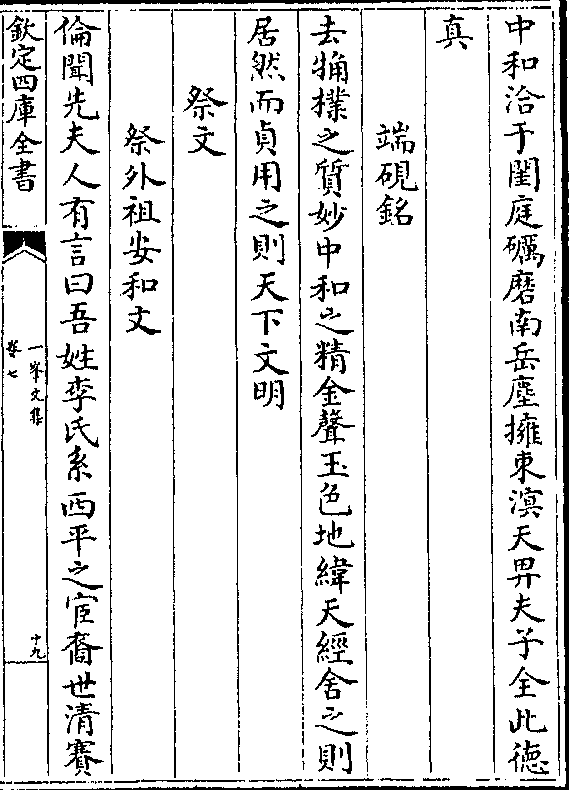 中和洽于閨庭礪磨南岳塵擁東溟天畀夫子全此德
真
端硯銘
去㭌樸之質妙中和之精金聲玉色地緯天經舍之則
居然而貞用之則天下文明
祭文
祭外祖安和文
倫聞先夫人有言曰吾姓李氏系西平之宦裔世清賽
欽定四庫全書
一峯文集
卷七
十九